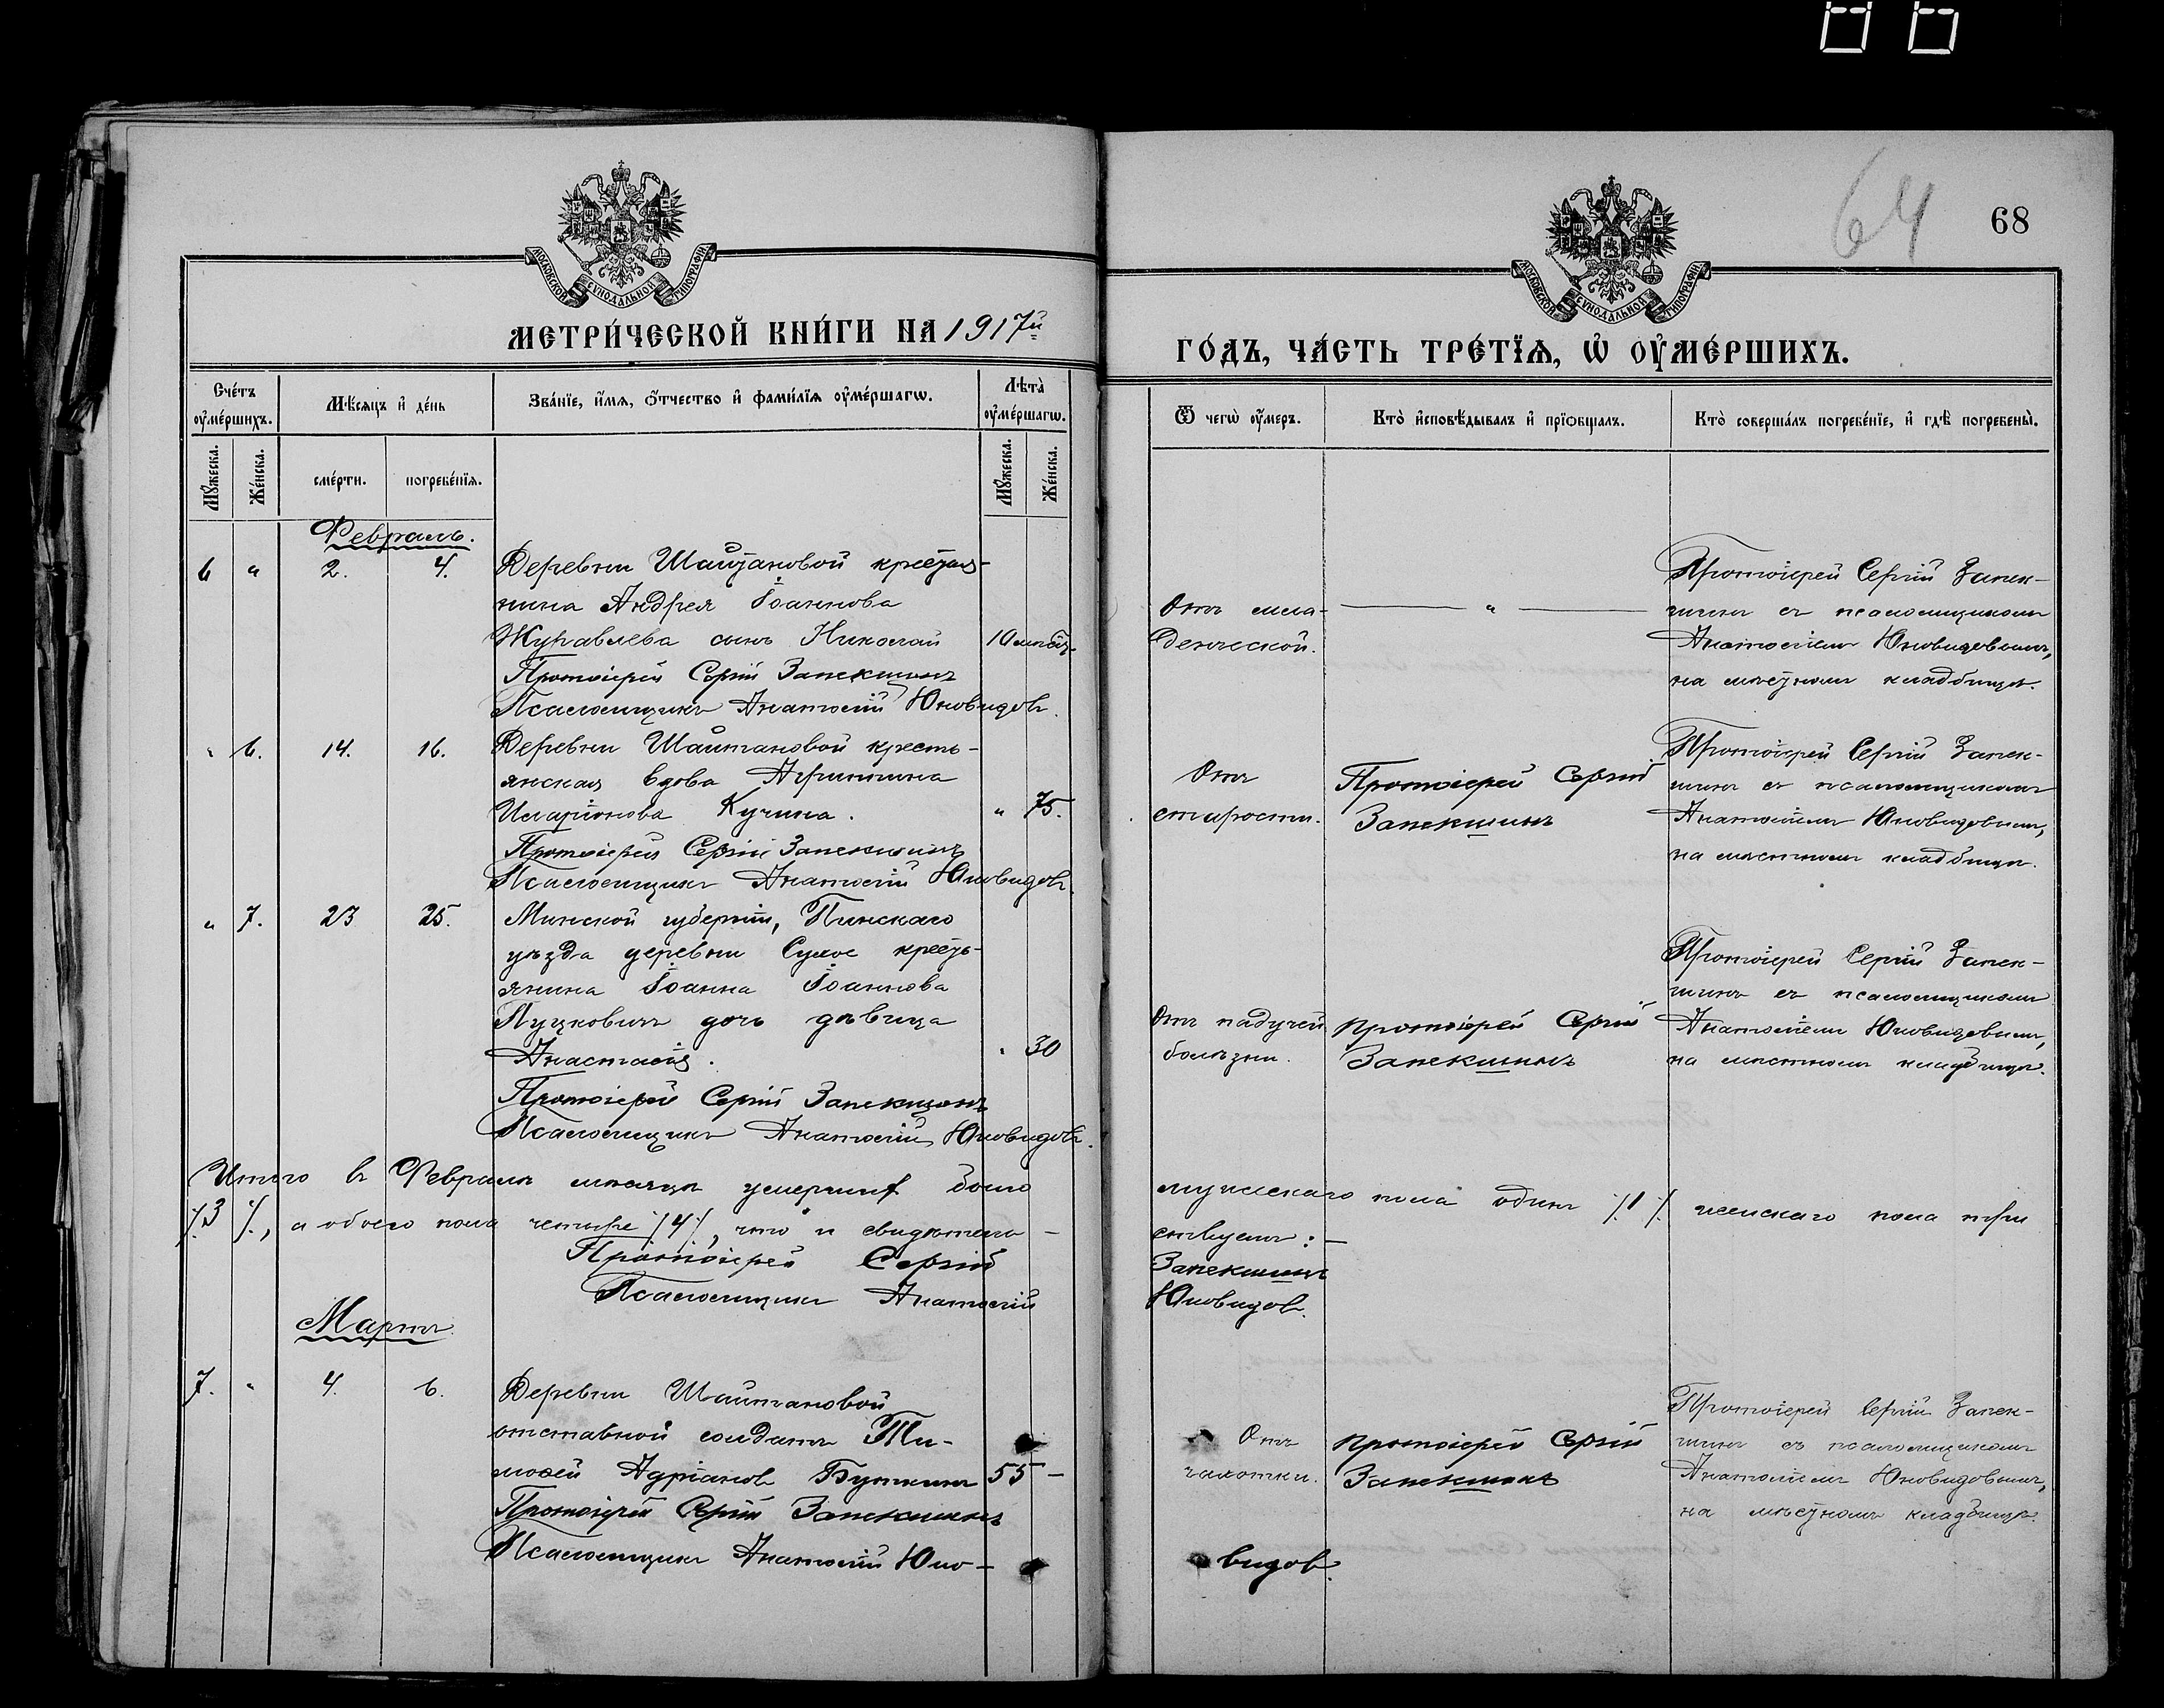 64
68
МОСКОВСКОЙ СѴНОДАЛЬНОЙ ТИПОГРАФІИ.
МОСКОВСКОЙ СѴНОДАЛЬНОЙ ТИПОГРАФІИ.
МЕТРИ́ЧЕСКОЙ КНИ́ГИ НА 1917й
ГО́ДЪ, ЧА́СТЬ ТРЕ́ТЇѦ, Ѡ҆ ОУ҆МЕ́РШИХЪ.
Сче́тъ оу҆ме́ршихъ.
Мѣ́сѧцъ и҆ де́нь
Зва́нїе, и҆́мѧ, ѻ҆́тчество и҆ фами́лїѧ оу҆ме́ршагѡ.
Лѣ́та оу҆ме́ршагѡ.
Ѿ чегѡ̀ оу҆́меръ.
Кто̀ и҆сповѣ́дывалъ и҆ прїѻбща́лъ.
Кто̀ соверша́лъ погребе́нїе, и҆ гдѣ̀ погребены̀.
Мꙋ́жеска.
Же́нска.
сме́рти.
погребе́нїѧ.
Мꙋ́жеска.
Же́нска.
Февраль.
6 " 2. 4. Деревни Шайтановой крестья-
нина Андрея Іоаннова
Журавлева сынъ Николай 10 мѣс.
Протоіерей Сергій Запекшинъ
Псаломщикъ Анатолій Юновидов.
Отъ мла-
денческой.
"
Протоіерей Сергій Запек-
шинъ съ псаломщикомъ
Анатоліемъ Юновидовымъ,
на мѣстномъ кладбищѣ.
" 6. 14. 16. Деревни Шайтановой кресть-
янская вдова
Иларіонова Кучина. " 75.
Протоіерей Сергій Запекшинъ
Псаломщикъ Анатолій Юновидов.
Отъ
старости.
Протоіерей Сергій
Запекшинъ
Протоіерей Сергій Запек-
шинъ съ псаломщикомъ
Анатоліемъ Юновидовымъ,
на мѣстномъ кладбищѣ.
" 7. 23 25. Минской губерніи, Пинскаго
уѣзда деревни Сухое кресть-
янина Іоанна Іоаннова
Пуцковичъ дочь дѣвица
Анастасія. " 30
Протоіерей Сергій Запекшинъ
Псаломщикъ Анатолій Юновидов.
Отъ падучей
болѣзни.
Протоіерей Сергій
Запекшинъ
Протоіерей Сергій Запек-
шинъ съ псаломщикомъ
Анатоліемъ Юновидовымъ,
на мѣстномъ кладбищѣ.
Итого въ Февралѣ мѣсяцѣ умершихъ было мужескаго пола одинъ /1/. женскаго пола три
/3/., а обоего пола четыре /4/, что и свидѣтель-ствуемъ: —
Протоіерей Сергій Запекшинъ
Псаломщикъ Анатолій Юновидов.
Мартъ.
7. " 4. 6. Деревни Шайтановой
отставной солдатъ Ти-
мофей Адріановъ Буткинъ 55 —
Протоіерей Сергій Запекшинъ
Псаломщикъ Анатолій Юно-видов.
Отъ
чахотки.
Протоіерей Сергій
Запекшинъ
Протоіерей Сергій Запек-
шинъ съ псаломщикомъ
Анатоліемъ Юновидовымъ,
на мѣстномъ кладбищѣ.